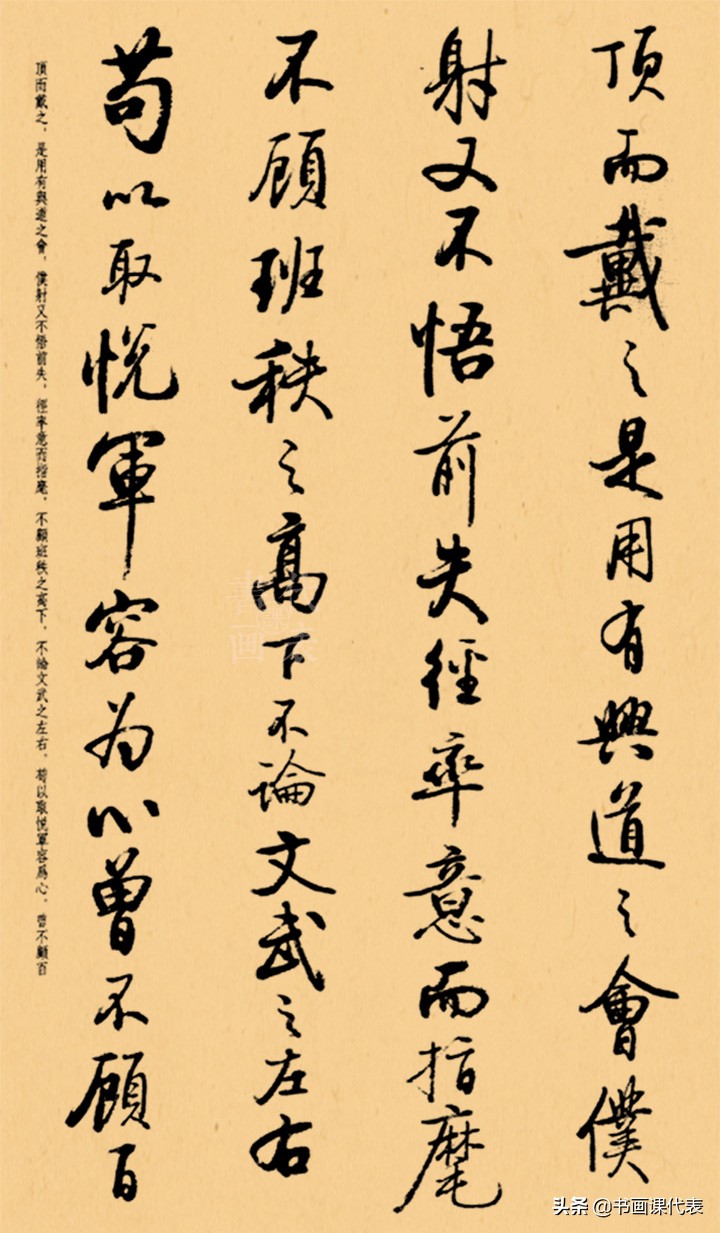 頂而戴之是用有興道之會僕
射又不悟前失徑率意而指麾
不顧班秩之高下不論文武之左右
苟以取悅軍容为心曾不顧百
頂而戴之，是用有興道之會，僕射又不悟前失，徑率意而指麾，不顧班秩之高下，不論文武之左右，苟以取悅軍容爲心，曾不顧百
头条 @书画课代表